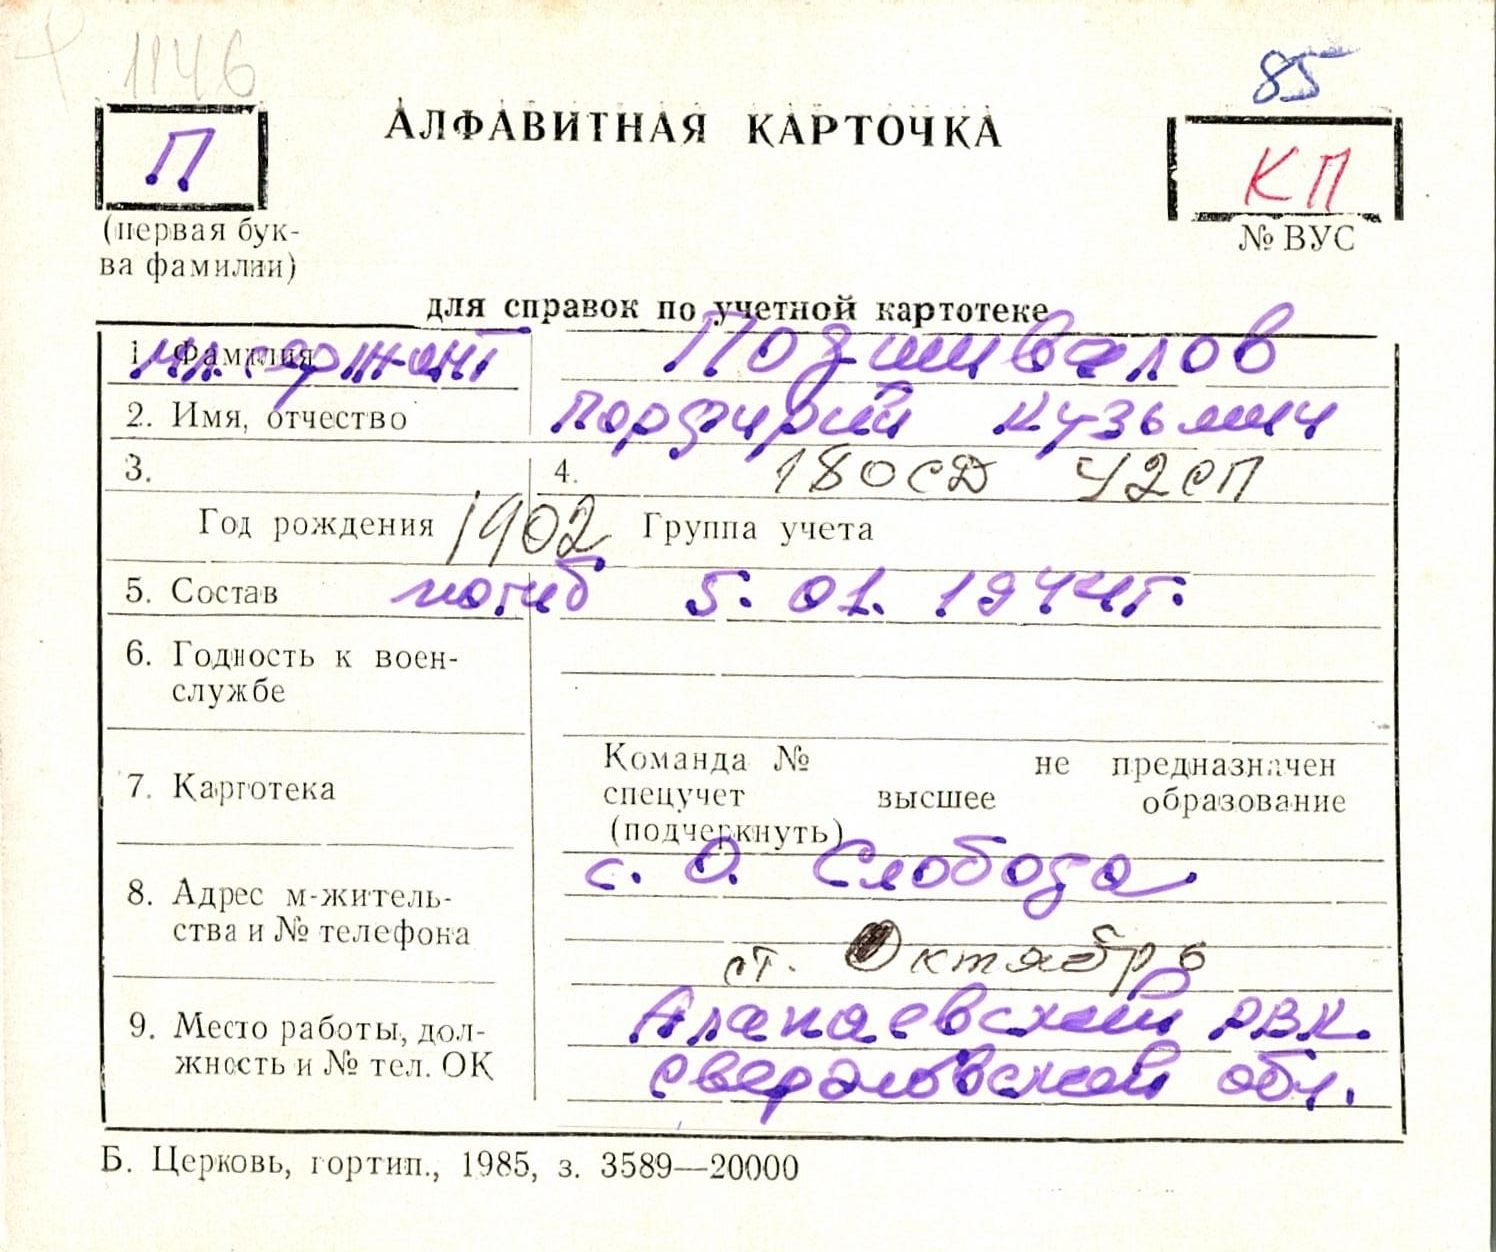 1146
85
П
АЛФАВИТНАЯ КАРТОЧКА
КП
(первая бук-
ва фамилии)
№ ВУС
для справок по учетной картотеке
1. Фамилия мл. сержант Подшивалов
2. Имя, отчество Порфирий Кузьмич
3. 4. 180 СД 42 СП
Год рождения 1902 Группа учета
5. Состав погиб 5.01.1944г.
6. Годность к воен-
службе
Команда № не предназначен
7. Картотека спецучет высшее образование
(подчеркнуть)
с. О. Слобода
8. Адрес м-житель-
ства и № телефона
ст. Октябрь
Алапаевский РВК.
9. Место работы, дол-
жность и № тел. ОК
Свердловской обл.
Б. Церковь, гортип., 1985, з. 3589—20000